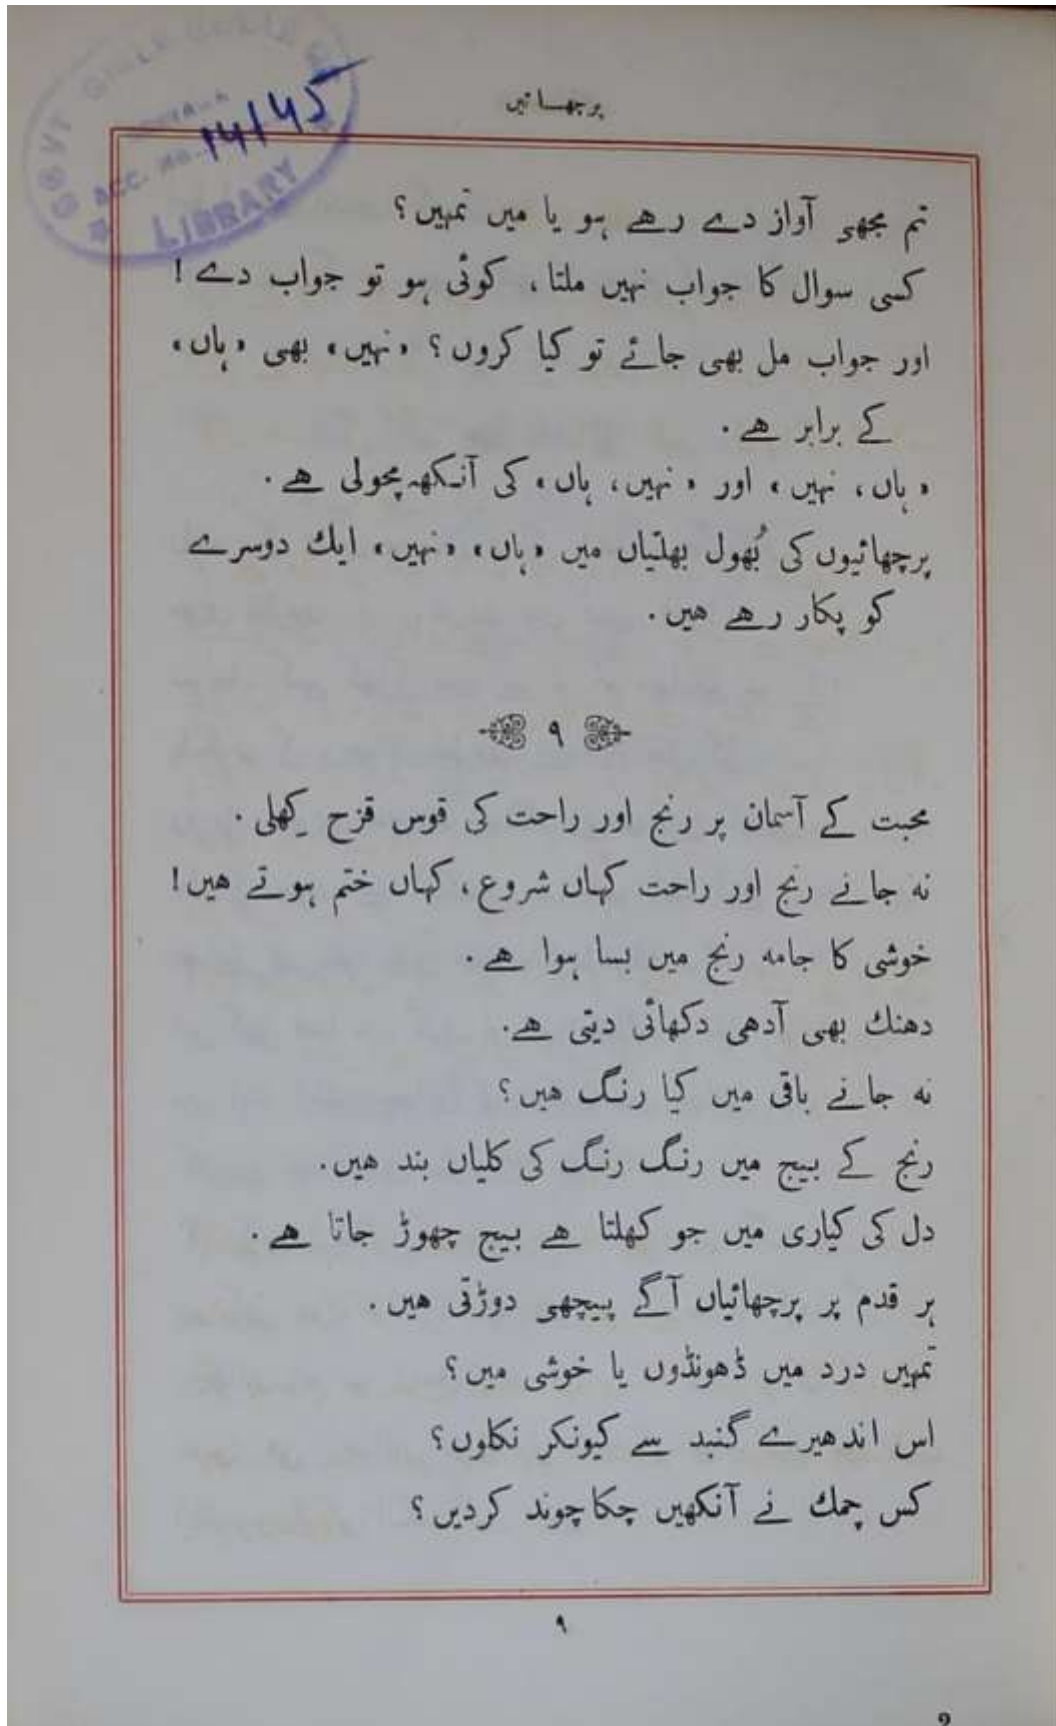 GOVT GIRLS
ACC. NO. 14145
LIBRARY
پرچھائیں
تم مجھے آواز دے رہے ہو یا میں تمہیں؟
کسی سوال کا جواب نہیں ملتا، کوئی ہو تو جواب دے!
اور جواب مل بھی جائے تو کیا کروں؟ «نہیں» بھی «ہاں»
کے برابر ہے۔
«ہاں، نہیں» اور «نہیں، ہاں» کی آنکھ مچولی ہے۔
پرچھائیوں کی بُھول بھلتیاں میں «ہاں» «نہیں» ایک دوسرے
کو پکار رہے ہیں۔
۹
محبت کے آسمان پر رنج اور راحت کی قوس قزح کِھلی۔
نہ جانے رنج اور راحت کہاں شروع، کہاں ختم ہوتے ہیں!
خوشی کا جامہ رنج میں بسا ہوا ہے۔
دھنک بھی آدھی دکھائی دیتی ہے۔
نہ جانے باقی میں کیا رنگ ہیں؟
رنج کے بیج میں رنگ رنگ کی کلیاں بند ہیں۔
دل کی کیاری میں جو کھلتا ہے بیج چھوڑ جاتا ہے۔
ہر قدم پر پرچھائیاں آگے پیچھے دوڑتی ہیں۔
تمہیں درد میں ڈھونڈوں یا خوشی میں؟
اس اندھیرے گنبد سے کیونکر نکلوں؟
کس چمک نے آنکھیں چکاچوند کردیں؟
۹
9